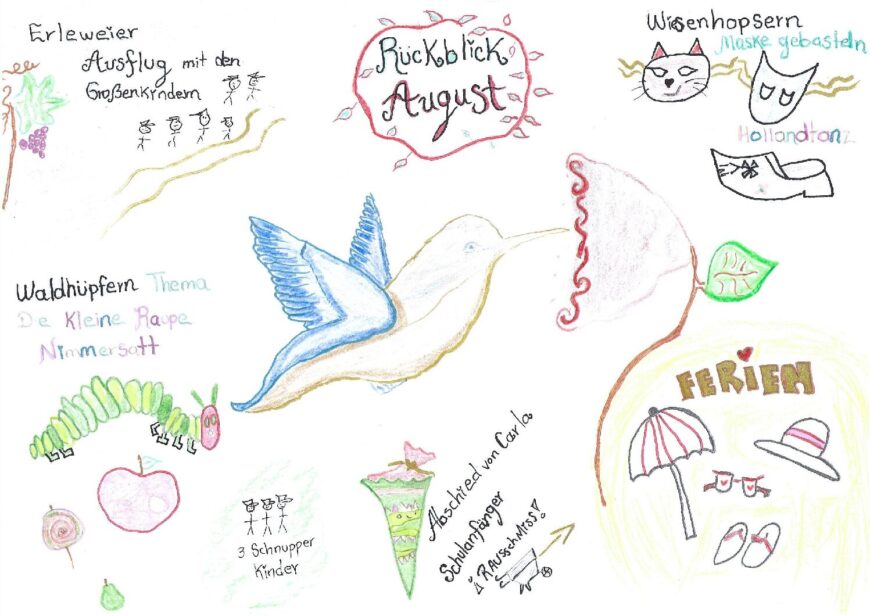 Erleweier
Ausflug mit den
Großenkindern
Rückblick
August
Wiesenhopsern
Maske gebasteln
Hollandtanz
Waldhüpfern Thema
De Kleine Raupe
Nimmersatt
FERIEN
3 Schnupper
Kinder
Abschied von Carla
Schulanfänger
¡RAUSSCHMISS!